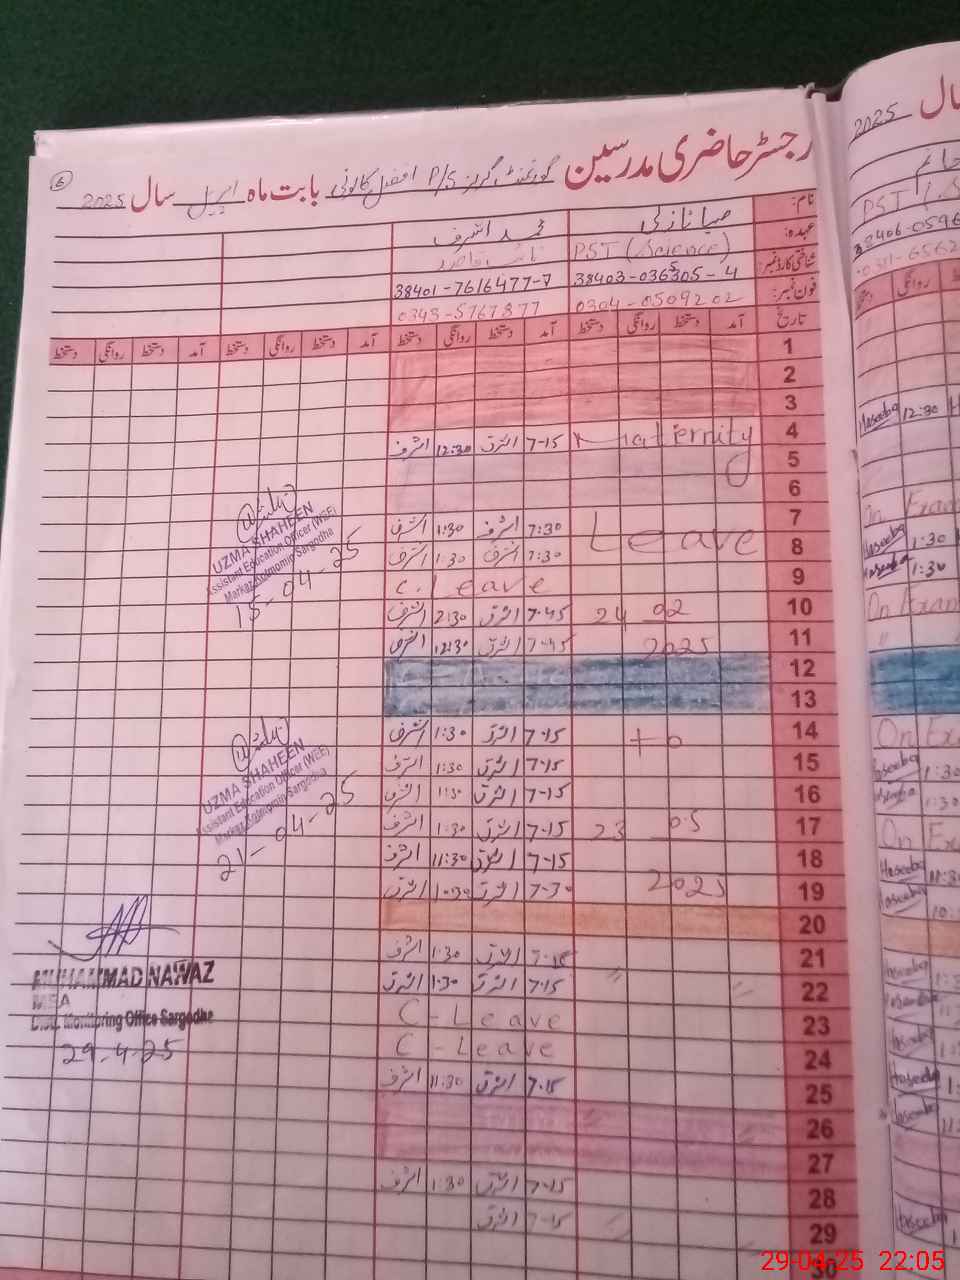 رجسٹر حاضری مدرسین گورنمنٹ گرلز P/S افضل کالونی بابت ماہ اپریل سال 2025
6
نام:
صبا نازلی
محمد اشرف
عہدہ:
PST (Science)
نائب قاصد
شناختی کارڈ نمبر:
38403-036305-4
38401-7616477-7
فون نمبر:
0304-0509202
0343-5767877
تاریخ آمد دستخط روانگی دستخط آمد دستخط روانگی دستخط آمد دستخط روانگی دستخط آمد دستخط روانگی دستخط
1
2
3
4 Maternity 7-15 اشرف 12:30 اشرف
5
6
7 Leave 7:30 اشرف 1:30 اشرف
8 7:30 اشرف 1:30 اشرف
9 C. Leave
10 24 02 7-45 اشرف 2:30 اشرف
11 2025 7-45 اشرف 12:30 اشرف
12
13
14 to 7-15 اشرف 1:30 اشرف
15 7-15 اشرف 1:30 اشرف
16 7-15 اشرف 1:30 اشرف
17 23 05 7-15 اشرف 1:30 اشرف
18 7-15 اشرف 11:30 اشرف
19 2025 7-30 اشرف 10:30 اشرف
20
21 7-15 اشرف 1:30 اشرف
22 7-15 اشرف 1:30 اشرف
23 C-Leave
24 C-Leave
25 7-15 اشرف 11:30 اشرف
26
27
28 7-15 اشرف 1:30 اشرف
29 7-15 اشرف
30
UZMA SHAHEEN
Assistant Education Officer (WEE)
Markaz Kotmomin Sargodha
15-04-25
UZMA SHAHEEN
Assistant Education Officer (WEE)
Markaz Kotmomin Sargodha
21-04-25
MUHAMMAD NAWAZ
MEA
Distt. Monitoring Office Sargodha
29-4-25
سال 2025
خانم
PST
38406-0596
0311-6562
روانگی دستخط
Haseeba 12:30
On Exam
Haseeba 1:30
Haseeba 1:30
On Exam
On Ex
Haseeba 1:30
Haseeba 1:30
On Ex
Haseeba 11:3
Haseeba 10:
Haseeba
Haseeba
Haseeba
Haseeba
Haseeba
Haseeba
29-04-25 22:05